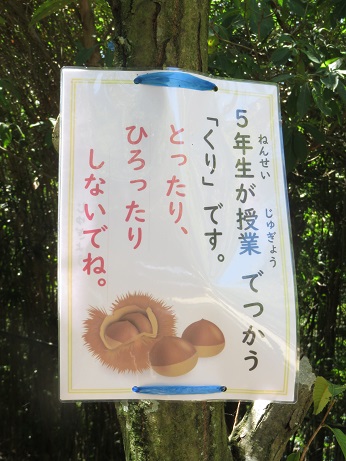 5年生が授業でつかう
ねんせい じゅぎょう
「くり」です。
とったり、
ひろったり
しないでね。